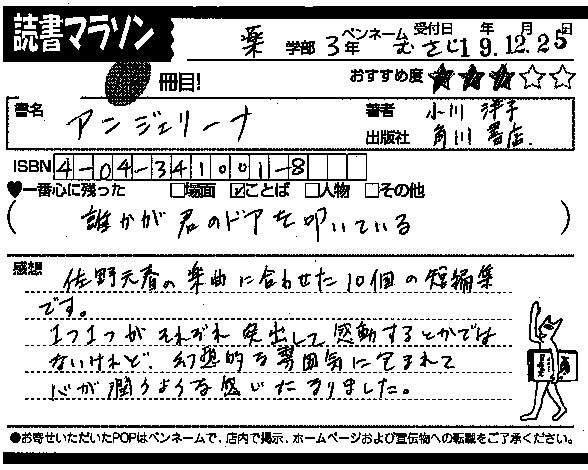 読書マラソン
薬 学部 3年 ペンネーム むさじ 受付日 19年12月25日
冊目! おすすめ度 ★★★☆☆
書名 アンジェリーナ 著者 小川 洋子
出版社 角川書店
ISBN 4-04-341001-8
♥一番心に残った □場面 ☑ことば □人物 □その他
(誰かが君のドアを叩いている)
感想 佐野元春の楽曲に合わせた10個の短編集
です。
1つ1つがそれぞれ突出して感動するとかでは
ないけれど、幻想的な雰囲気に包まれて
心が潤うような感じになりました。
●お寄せいただいたPOPはペンネームで、店内で掲示、ホームページおよび宣伝物への転載をご了承ください。